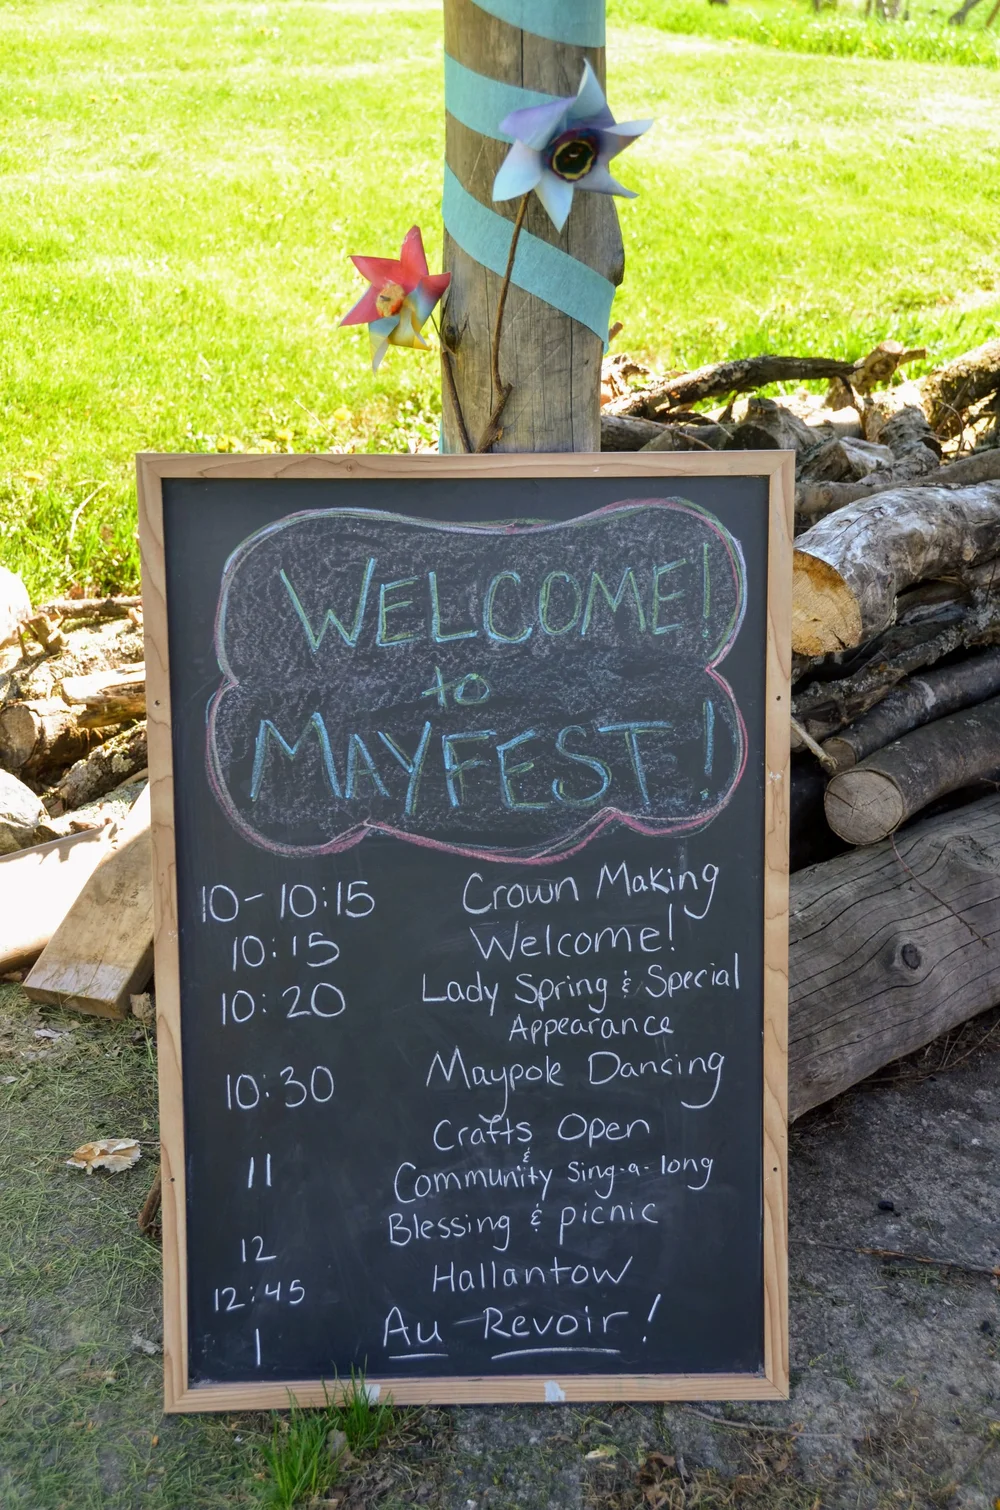 WELCOME!
to
MAYFEST!
10-10:15 Crown Making
10:15 Welcome!
10:20 Lady Spring & Special
Appearance
10:30 Maypole Dancing
Crafts Open
&
11 Community Sing-a-long
12 Blessing & picnic
12:45 Hallantow
1 Au Revoir!